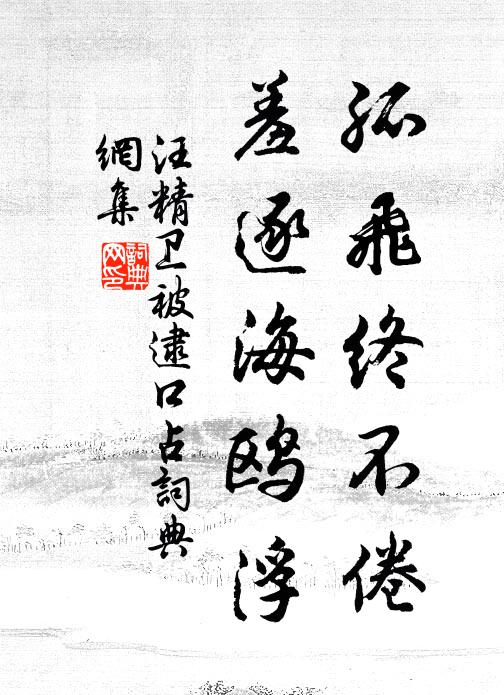 孤飛終不倦
羞逐海鷗浮
汪精卫被逮口占詞典
網集
詞典
网印